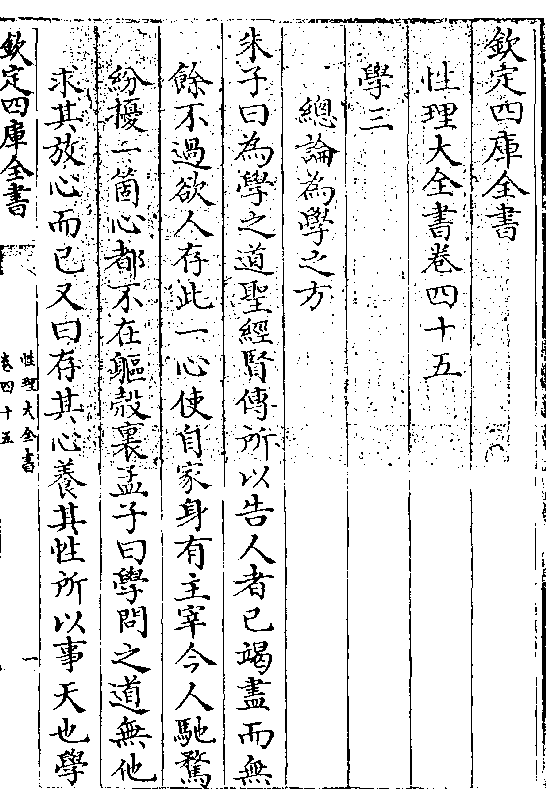 欽定四庫全書
性理大全書卷四十五
學三
總論為學之方
朱子曰為學之道聖經賢傳所以告人者已竭盡而無
餘不過欲人存此一心使自家身有主宰今人馳騖
紛擾一箇心都不在軀殼裏孟子曰學問之道無他
求其放心而已又曰存其心養其性所以事天也學
欽定四庫全書
性理大全書
卷四十五
一